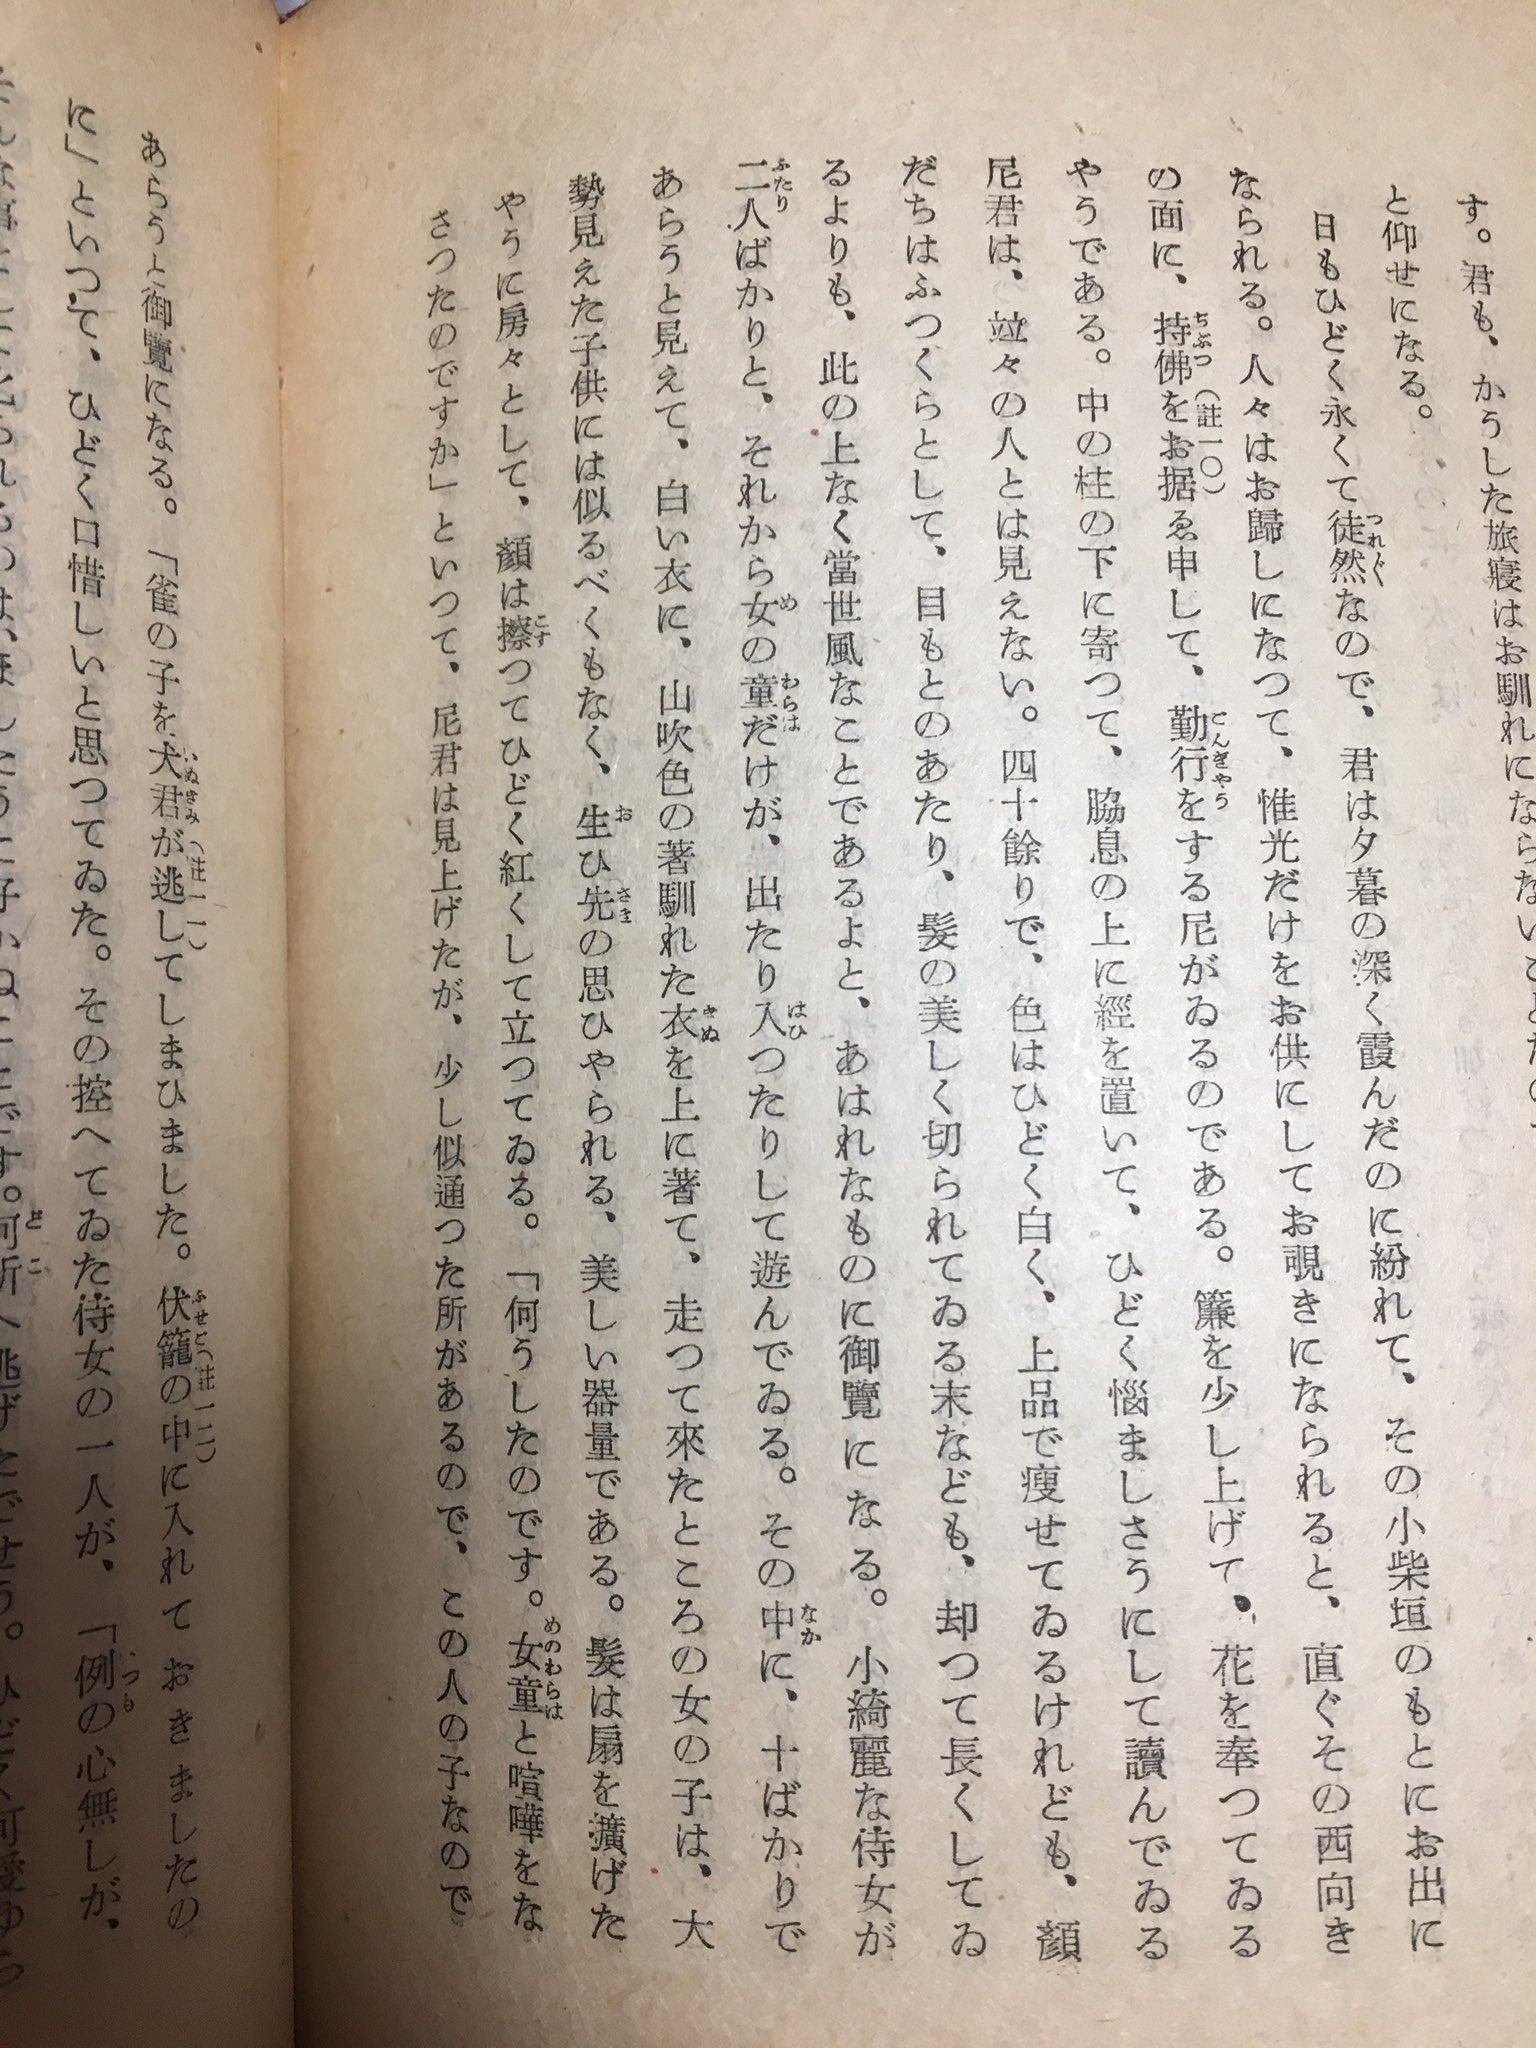 す。君も、かうした旅寢はお馴れにならないことなので
と仰せになる。
日もひどく永くて徒然なので、君は夕暮の深く霞んだのに紛れて、その小柴垣のもとにお出に
なられる。人々はお歸しになつて、惟光だけをお供にしてお覗きになられると、直ぐその西向き
の面に、持佛(註一〇)をお据ゑ申して、勤行をする尼がゐるのである。簾を少し上げて、花を奉つてゐる
やうである。中の柱の下に寄つて、脇息の上に經を置いて、ひどく惱ましさうにして讀んでゐる
尼君は、竝々の人とは見えない。四十餘りで、色はひどく白く、上品で瘦せてゐるけれども、顏
だちはふつくらとして、目もとのあたり、髮の美しく切られてゐる末なども、却つて長くしてゐ
るよりも、此の上なく當世風なことであるよと、あはれなものに御覽になる。小綺麗な侍女が
二人ばかりと、それから女の童だけが、出たり入つたりして遊んでゐる。その中に、十ばかりで
あらうと見えて、白い衣に、山吹色の著馴れた衣を上に著て、走つて來たところの女の子は、大
勢見えた子供には似るべくもなく、生ひ先の思ひやられる、美しい器量である。髮は扇を擴げた
やうに房々として、顏は擦つてひどく紅くして立つてゐる。「何うしたのです。女童と喧嘩をな
さつたのですか」といつて、尼君は見上げたが、少し似通つた所があるので、この人の子なので
あらうと御覽になる。「雀の子を犬君が(註一一)逃してしまひました。伏籠(註一二)の中に入れておきましたの
に」といつて、ひどく口惜しいと思つてゐた。その控へてゐた侍女の一人が、「例の心無しが、
です。何所へ逃げたでせう。ひどく可愛ゆ